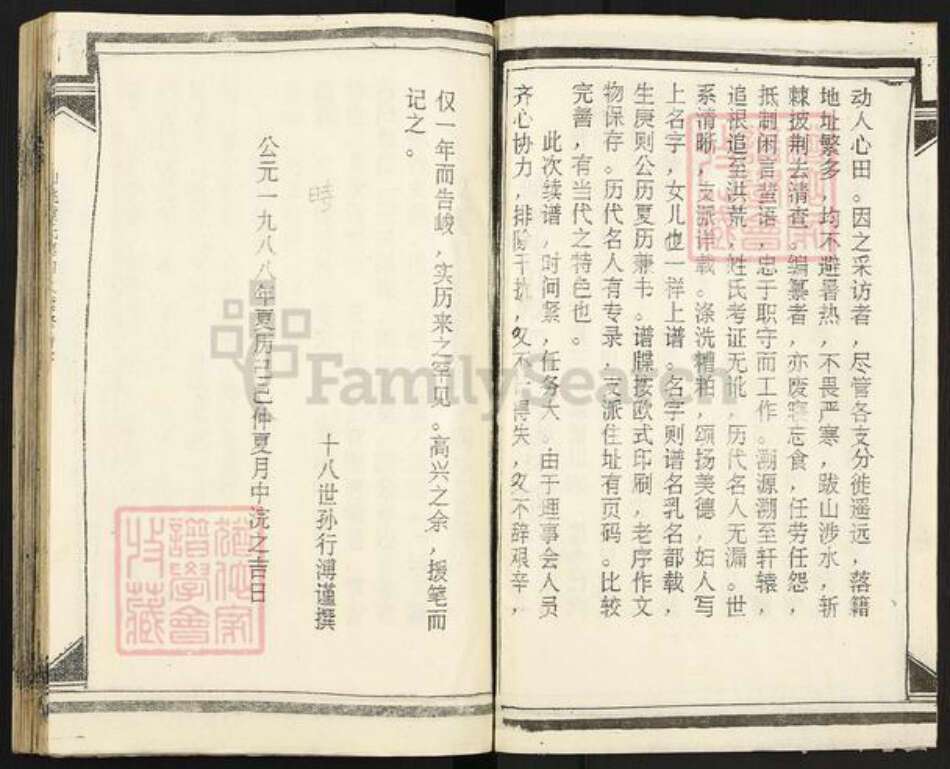 动人心田。因之采访者，尽管各支分徙遥远，落籍
地址繁多，均不避暑热，不畏严寒，跋山涉水，斩
棘披荆去清查。编纂者，亦废寝忘食，任劳任怨，
抵制闲言蜚语，忠于职守而工作。溯源溯至轩辕，
追根追至洪荒，姓氏考证无讹，历代名人无漏。世
系清晰，支派详载。涤洗糟粕，颂扬美德，妇人写
上名字，女儿也一样上谱。名字则谱名乳名都载，
生庚则公历夏历兼书。谱牒按欧式印刷，老序作文
物保存。历代名人有专录，支派住址有页码。比较
完善，有当代之特色也。
此次续谱，时间紧，任务大。由于理事会人员
齐心协力，排除干扰，又不 得失，又不辞艰辛，
仅一年而告峻，实历来之罕见。高兴之余，援笔而
记之。
時
十八世孙行溥谨撰
公元一九八八年夏历己巳仲夏月中浣之吉日
FamilySearch
譜學會
收藏